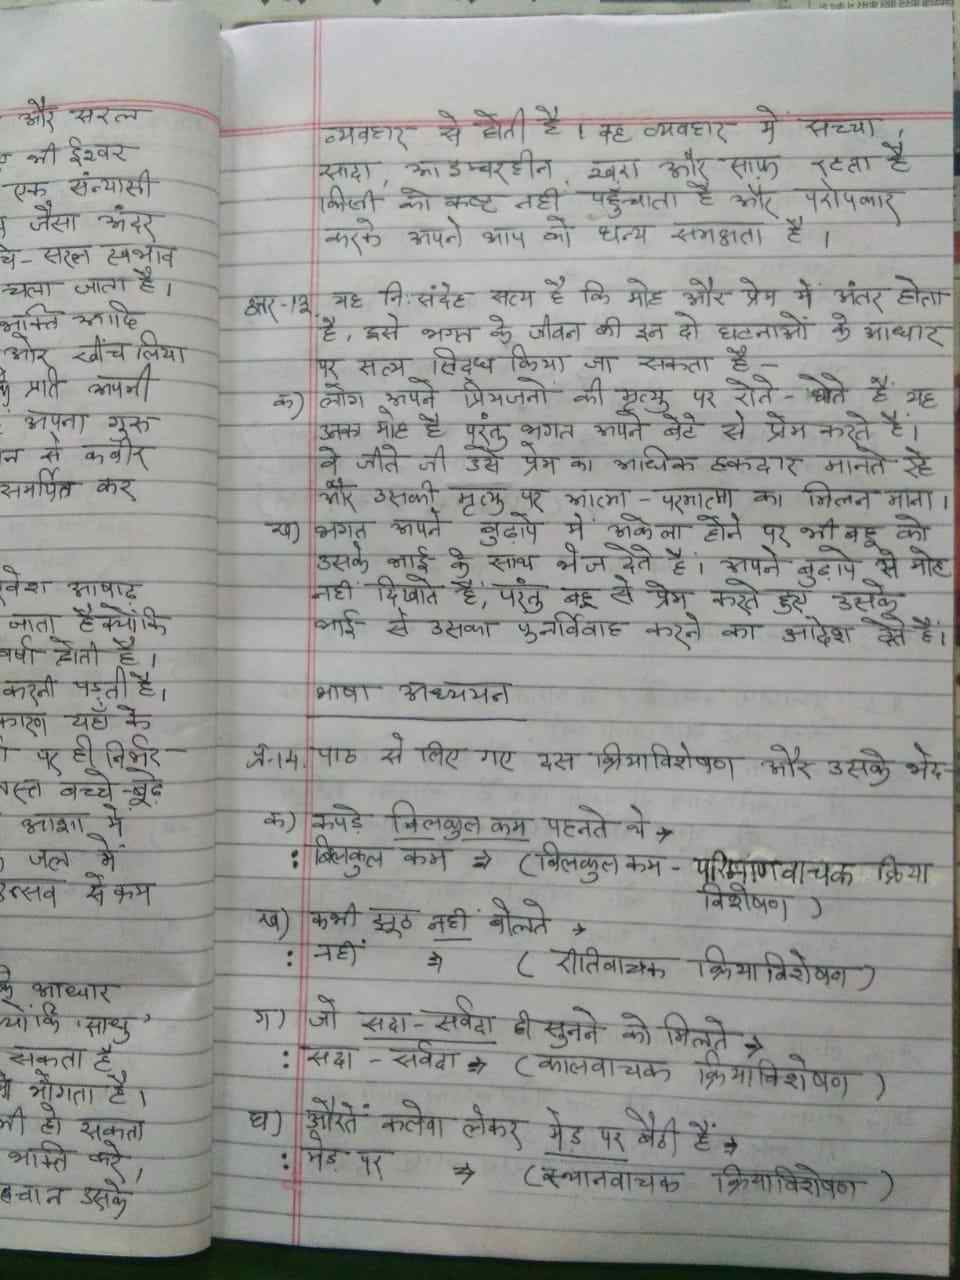 और सरल
भी ईश्वर
एक संन्यासी
जैसा अंदर
सरल स्वभाव
चला जाता है।
भक्ति आदि
ओर खींच लिया
के प्रति अपनी
अपना गुरु
से कबीर
समर्पित कर
आषाढ़
जाता है क्योंकि
वर्षा होती है।
करनी पड़ती है।
कारण यहाँ के
पर ही निर्भर
बच्चे-बूढ़े
आशा में
जल में
उत्सव से कम
के आधार
क्योंकि 'साधु'
सकता है
भोगता है।
भी हो सकता
भक्ति करे,
उसके
व्यवहार से होती है। वह व्यवहार में सच्चा,
सादा, आडम्बरहीन, खरा और साफ़ रहता है
किसी को कष्ट नहीं पहुँचाता है और परोपकार
करके अपने आप को धन्य समझता है।
उत्तर-13. यह नि:संदेह सत्य है कि मोह और प्रेम में अंतर होता
है, इसे भगत के जीवन की इन दो घटनाओं के आधार
पर सत्य सिद्ध किया जा सकता है -
क) लोग अपने प्रियजनों की मृत्यु पर रोते - धोते हैं यह
उनका मोह है परंतु भगत अपने बेटे से प्रेम करते हैं।
वे जीते जी उसे प्रेम का अधिक हकदार मानते रहे
और उसकी मृत्यु पर आत्मा - परमात्मा का मिलन माना।
ख) भगत अपने बुढ़ापे में अकेला होने पर भी बहू को
उसके भाई के साथ भेज देते हैं। अपने बुढ़ापे से मोह
नहीं दिखाते हैं, परंतु बहू से प्रेम करते हुए उसके
भाई से उसका पुनर्विवाह करने का आदेश देते हैं।
भाषा अध्ययन
प्र-14. पाठ से लिए गए दस क्रियाविशेषण और उसके भेद-
क) कपड़े बिलकुल कम पहनते थे →
: बिलकुल कम ⇒ (बिलकुल कम - परिमाणवाचक क्रिया
विशेषण)
ख) कभी झूठ नहीं बोलते →
: नहीं ⇒ (रीतिवाचक क्रियाविशेषण)
ग) जो सदा-सर्वदा ही सुनने को मिलते →
: सदा - सर्वदा ⇒ (कालवाचक क्रियाविशेषण)
घ) औरतें कलेवा लेकर मेड़ पर बैठी हैं →
: मेड़ पर ⇒ (स्थानवाचक क्रियाविशेषण)